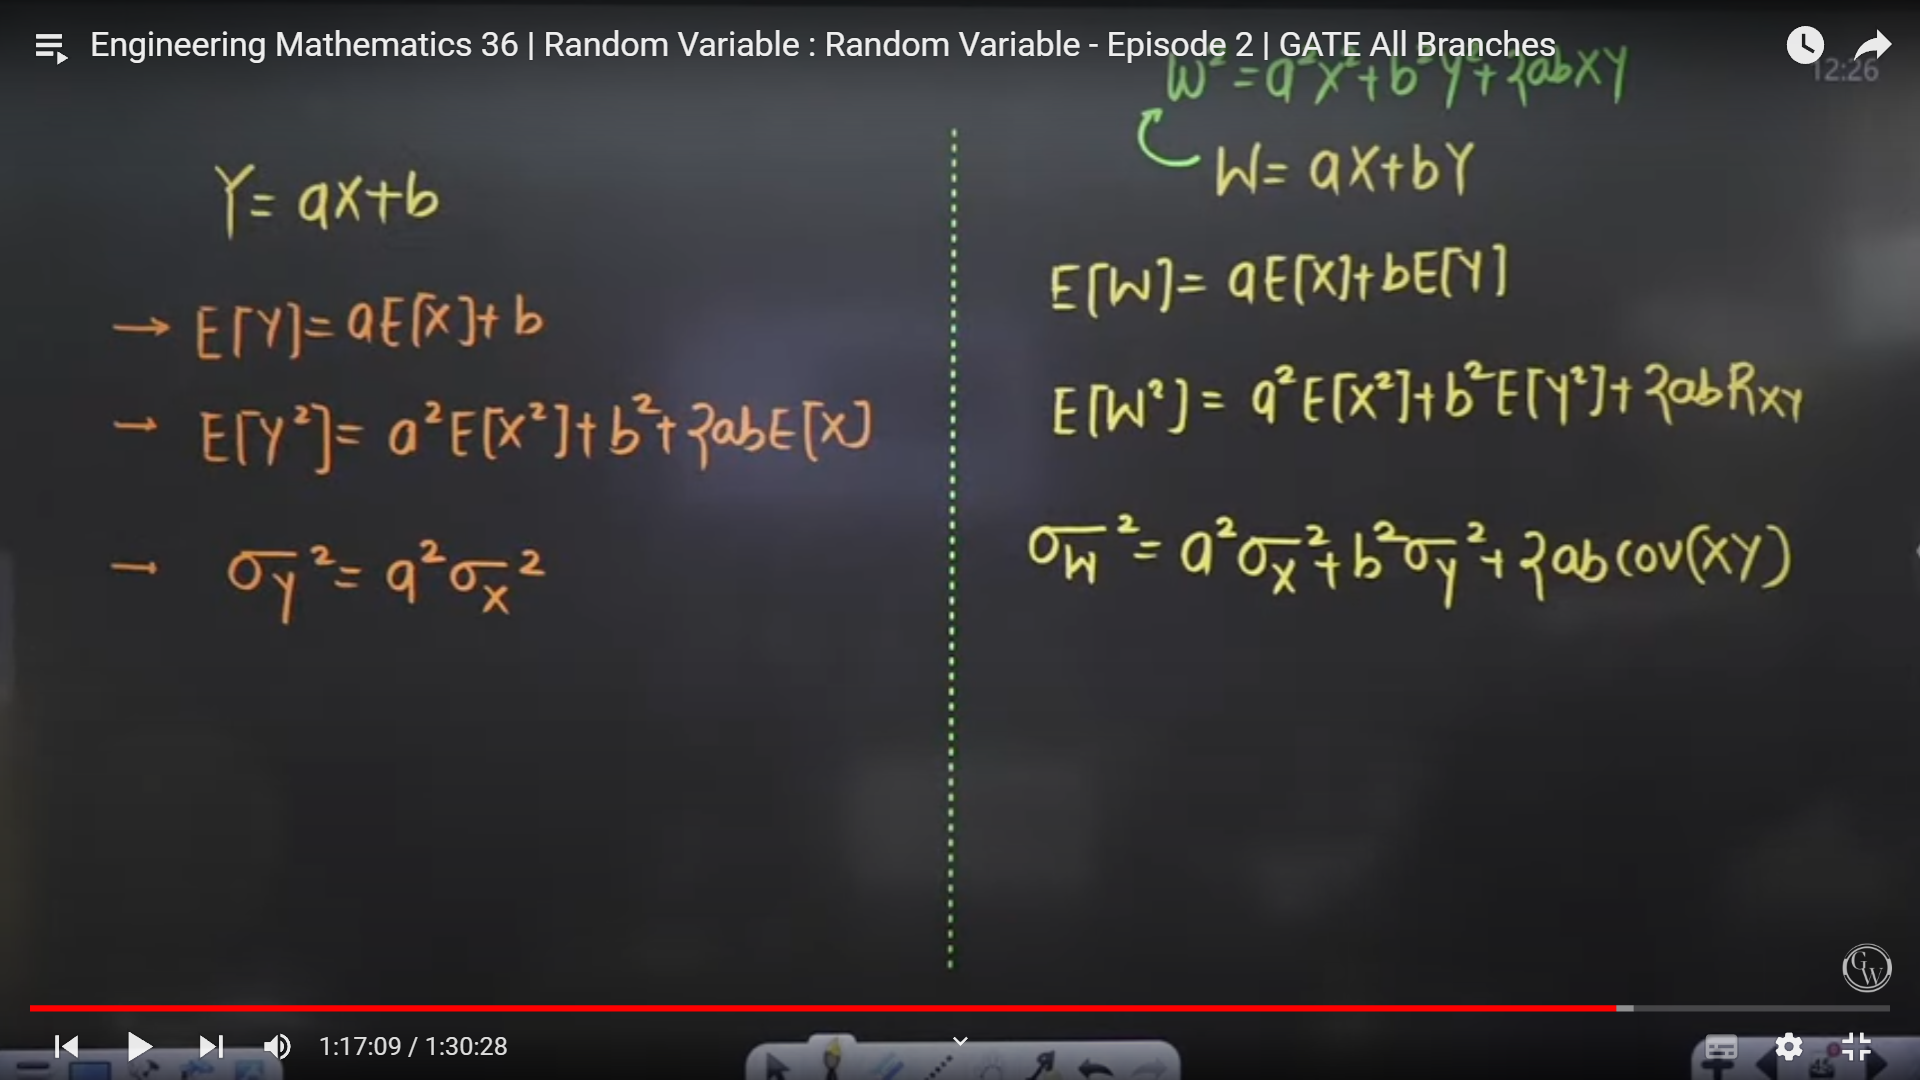 Engineering Mathematics 36 | Random Variable : Random Variable - Episode 2 | GATE All Branches
12:26
Y= aX+b
→ E[Y]= aE[X]+ b
→ E[Y²]= a²E[X²]+b²+2abE[X]
→ σY²= a²σX²
W²=a²X²+b²Y²+2abXY
W= aX+bY
E[W]= aE[X]+bE[Y]
E[W²]= a²E[X²]+b²E[Y²]+2abRXY
σW²= a²σX²+b²σY²+2abCOV(XY)
GW
1:17:09 / 1:30:28